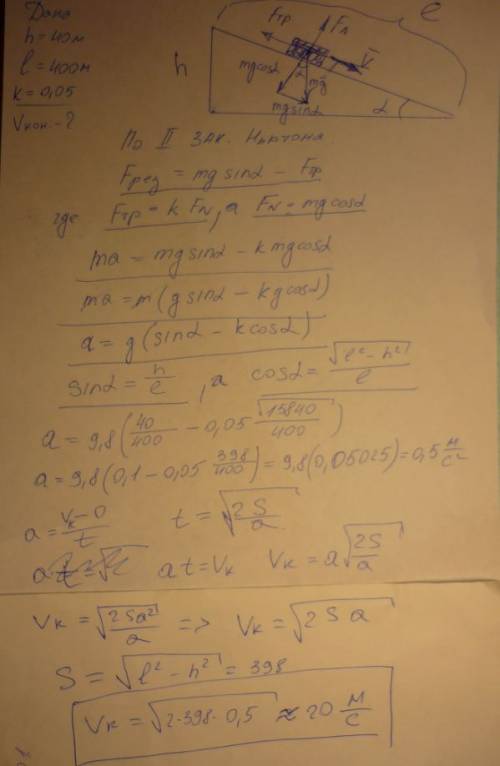 Дано
h = 40м
l = 400м
k = 0,05
Vкон. - ?
Fтр
Fл
V̄
h
l
mgcosα
α
mḡ
mgsinα
α
По II зак. Ньютона
Fрез = mg sinα - Fтр
где Fтр = k FN, а FN = mg cosα
ma = mg sinα - k mg cosα
ma = m(g sinα - kg cosα)
a = g(sinα - k cosα)
sinα = h/l, а cosα = √(l² - h²)/l
a = 9,8(40/400 - 0,05 √15840/400)
a = 9,8(0,1 - 0,05 398/400) = 9,8(0,05025) = 0,5 м/с²
a = (vк - 0)/t t = √(2S/a)
at = Vк Vк = a√(2S/a)
Vк = √(2Sa²/a) => Vк = √(2Sa)
S = √(l² - h²) = 398
Vк = √(2·398·0,5) ≈ 20 м/с